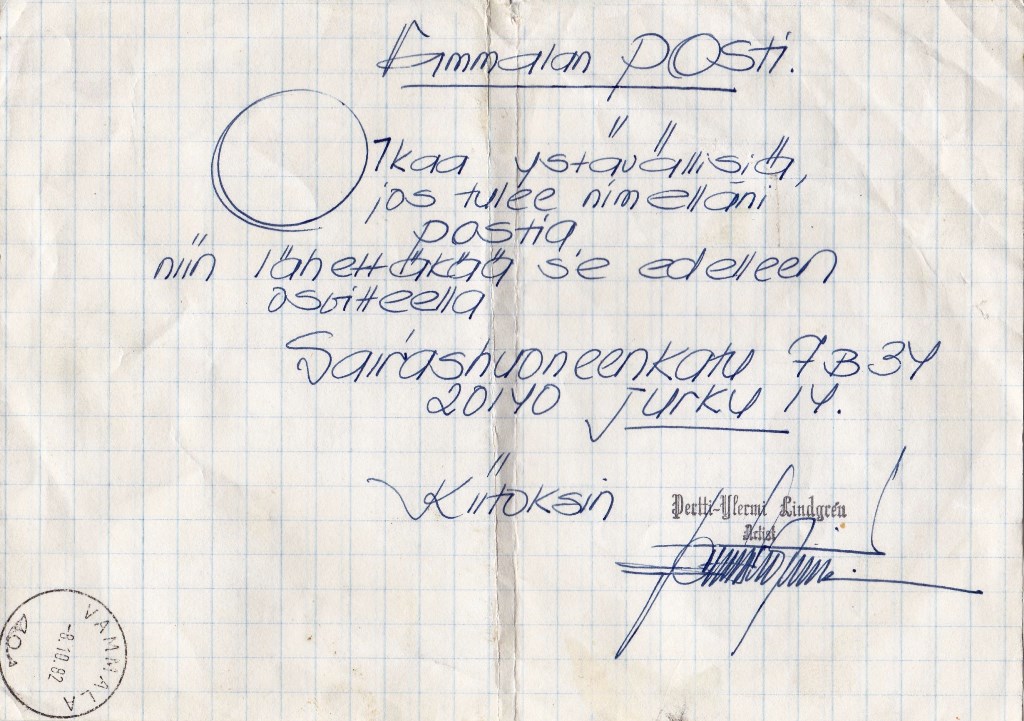 Vammalan posti.
Olkaa ystävällisiä,
jos tulee nimelläni
postia
niin lähettäkää se edelleen
osoitteella
Sairashuoneenkatu 7B34
20140 Turku 14.
Kiitoksin
Pertti-Ylermi Lindgrén
Artist
VAMMALA
-8.10.82